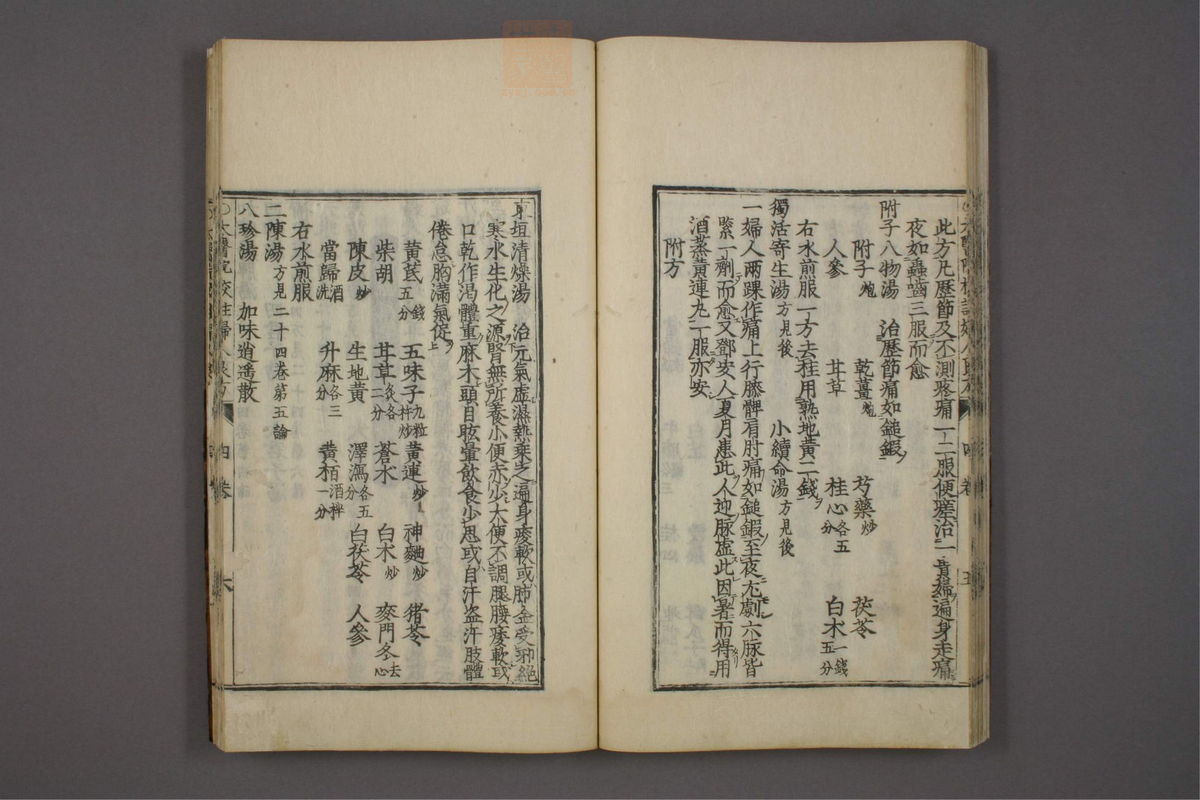 此方凡歷節及不測疼痛一二服便瘥治一貴婦遍身走痛
夜如轟嚙三服而愈
附子八物湯 治歷節痛如鎚鍜
附子炮 乾薑炮 芍藥炒 茯苓
人參 甘草 桂心各五分 白朮一錢五分
右水煎服一方去桂用熟地黃二錢
獨活寄生湯方見後 小續命湯方見後
一婦人兩踝作痛上行膝髀肩肘痛如鎚鍜至夜尤劇六脉皆
緊一劑而愈又鄧安人夏月患此人迎脉虛此因暑而得用
酒蒸黃連丸一服亦安
附方
四卷 五
東垣清燥湯 治元氣虛濕熱乘之遍身痠軟或肺金受邪絕
寒水生化之源腎無所養小便赤少大便不調腿腰痿軟或
口乾作渴體重麻木頭目眩暈飲食少思或自汗盜汗肢體
倦怠胸滿氣促
黃芪五分錢 五味子九粒杵炒 黃連炒 神麯炒 猪苓
柴胡 甘草炙各二分 蒼朮 白朮炒 麥門冬去心
陳皮炒 生地黃 澤瀉各五分 白茯苓 人參
當歸酒洗 升麻各三分 黃栢酒拌一分
右水煎服
二陳湯方見二十四卷第五論
八珍湯 加味逍遥散
○太醫院校註婦人良方 四卷 六